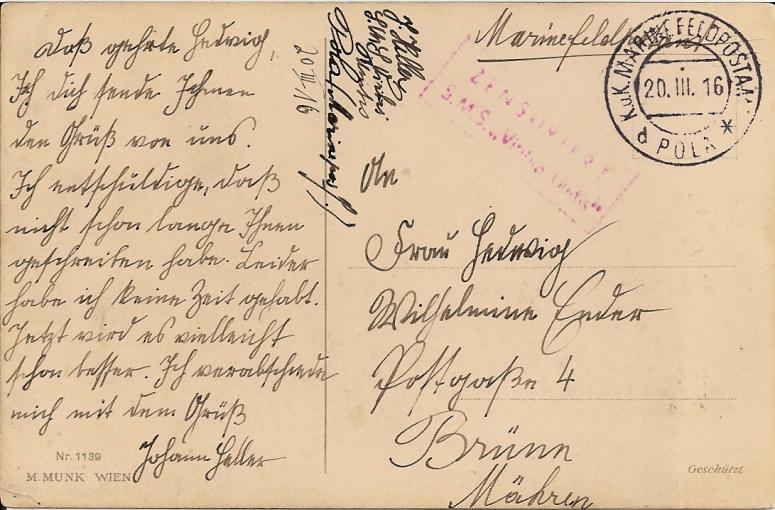 Daß gehrte Hedwig,
Ich dir sende Ichnen
den Grüß von uns.
Ich entschuldige, daß
nicht schon lange Ihnen
geschreiben habe. Leider
habe ich keine Zeit gehabt.
Jetzt wird es vielleicht
schon besser. Ich verabschiede
mich mit dem Grüß
Johann Heller
Nr. 1139
M. MUNK WIEN
20 III 16
Marinefeldpost
K.u.K. MARINEFELDPOSTAMT
20. III. 16
POLA *
ZENSURIERT
S.M.S.
An
Frau Hedwig
Wilhelmine Ender
Postgaße 4
Brünn
Mähren
Geschützt